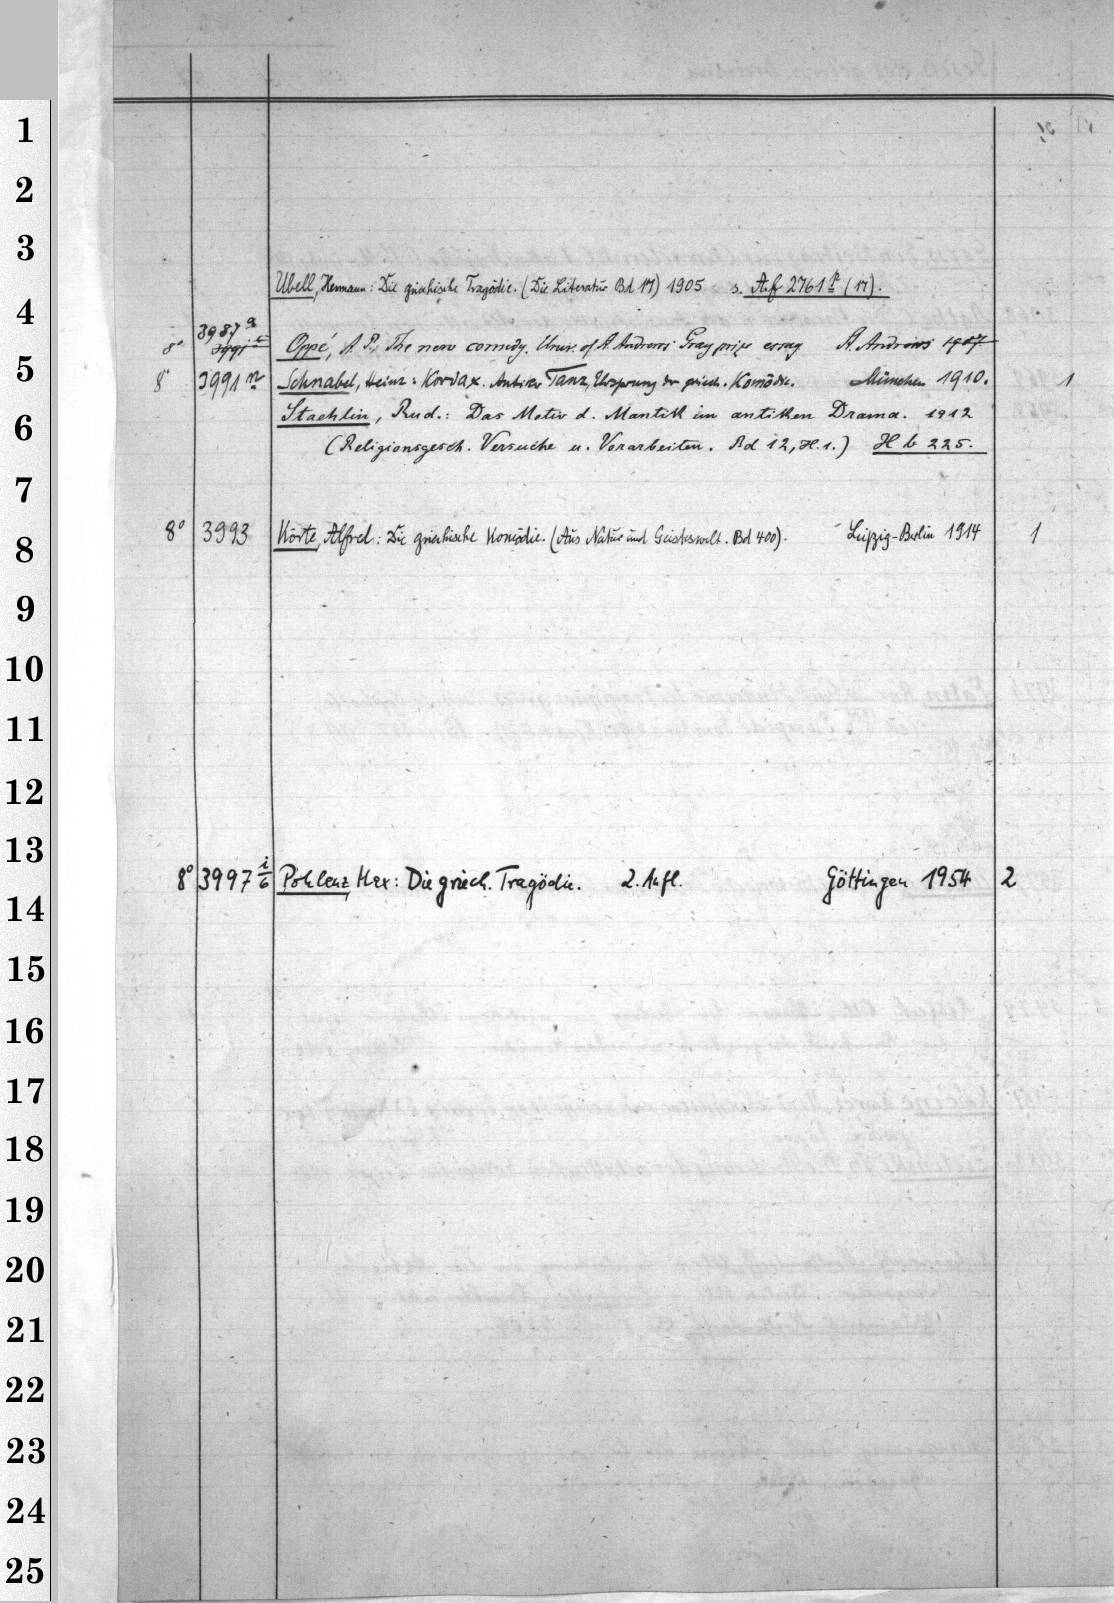 1
2
3
Ubell, Hermann: Die griechische Tragödie. (Die Literatur Bd 17) 1905 s. A.f 2761 (17).
4
3987 a
8° Oppé, A. P.: The new comedy. Univ. of St Andrews Gray prize essay St. Andrews
5
8° 3991 n Schnabel, Heinz: Kordax. Antiker Tanz, Ursprung der griech. Komödie. München 1910. 1
Staehlin, Rud.: Das Motiv d. Mantik im antiken Drama. 1912
6
(Religionsgesch. Versuche u. Vorarbeiten. Bd 12, H. 1.) H b 225.
7
8° 3993 Körte, Alfred: Die griechische Komödie. (Aus Natur und Geisteswelt. Bd 400). Leipzig-Berlin 1914 1
8
9
10
11
12
13
8° 3997 i/6 Pohlenz, Max: Die griech. Tragödie. 2. Aufl. Göttingen 1954 2
14
15
16
17
18
19
20
21
22
23
24
25